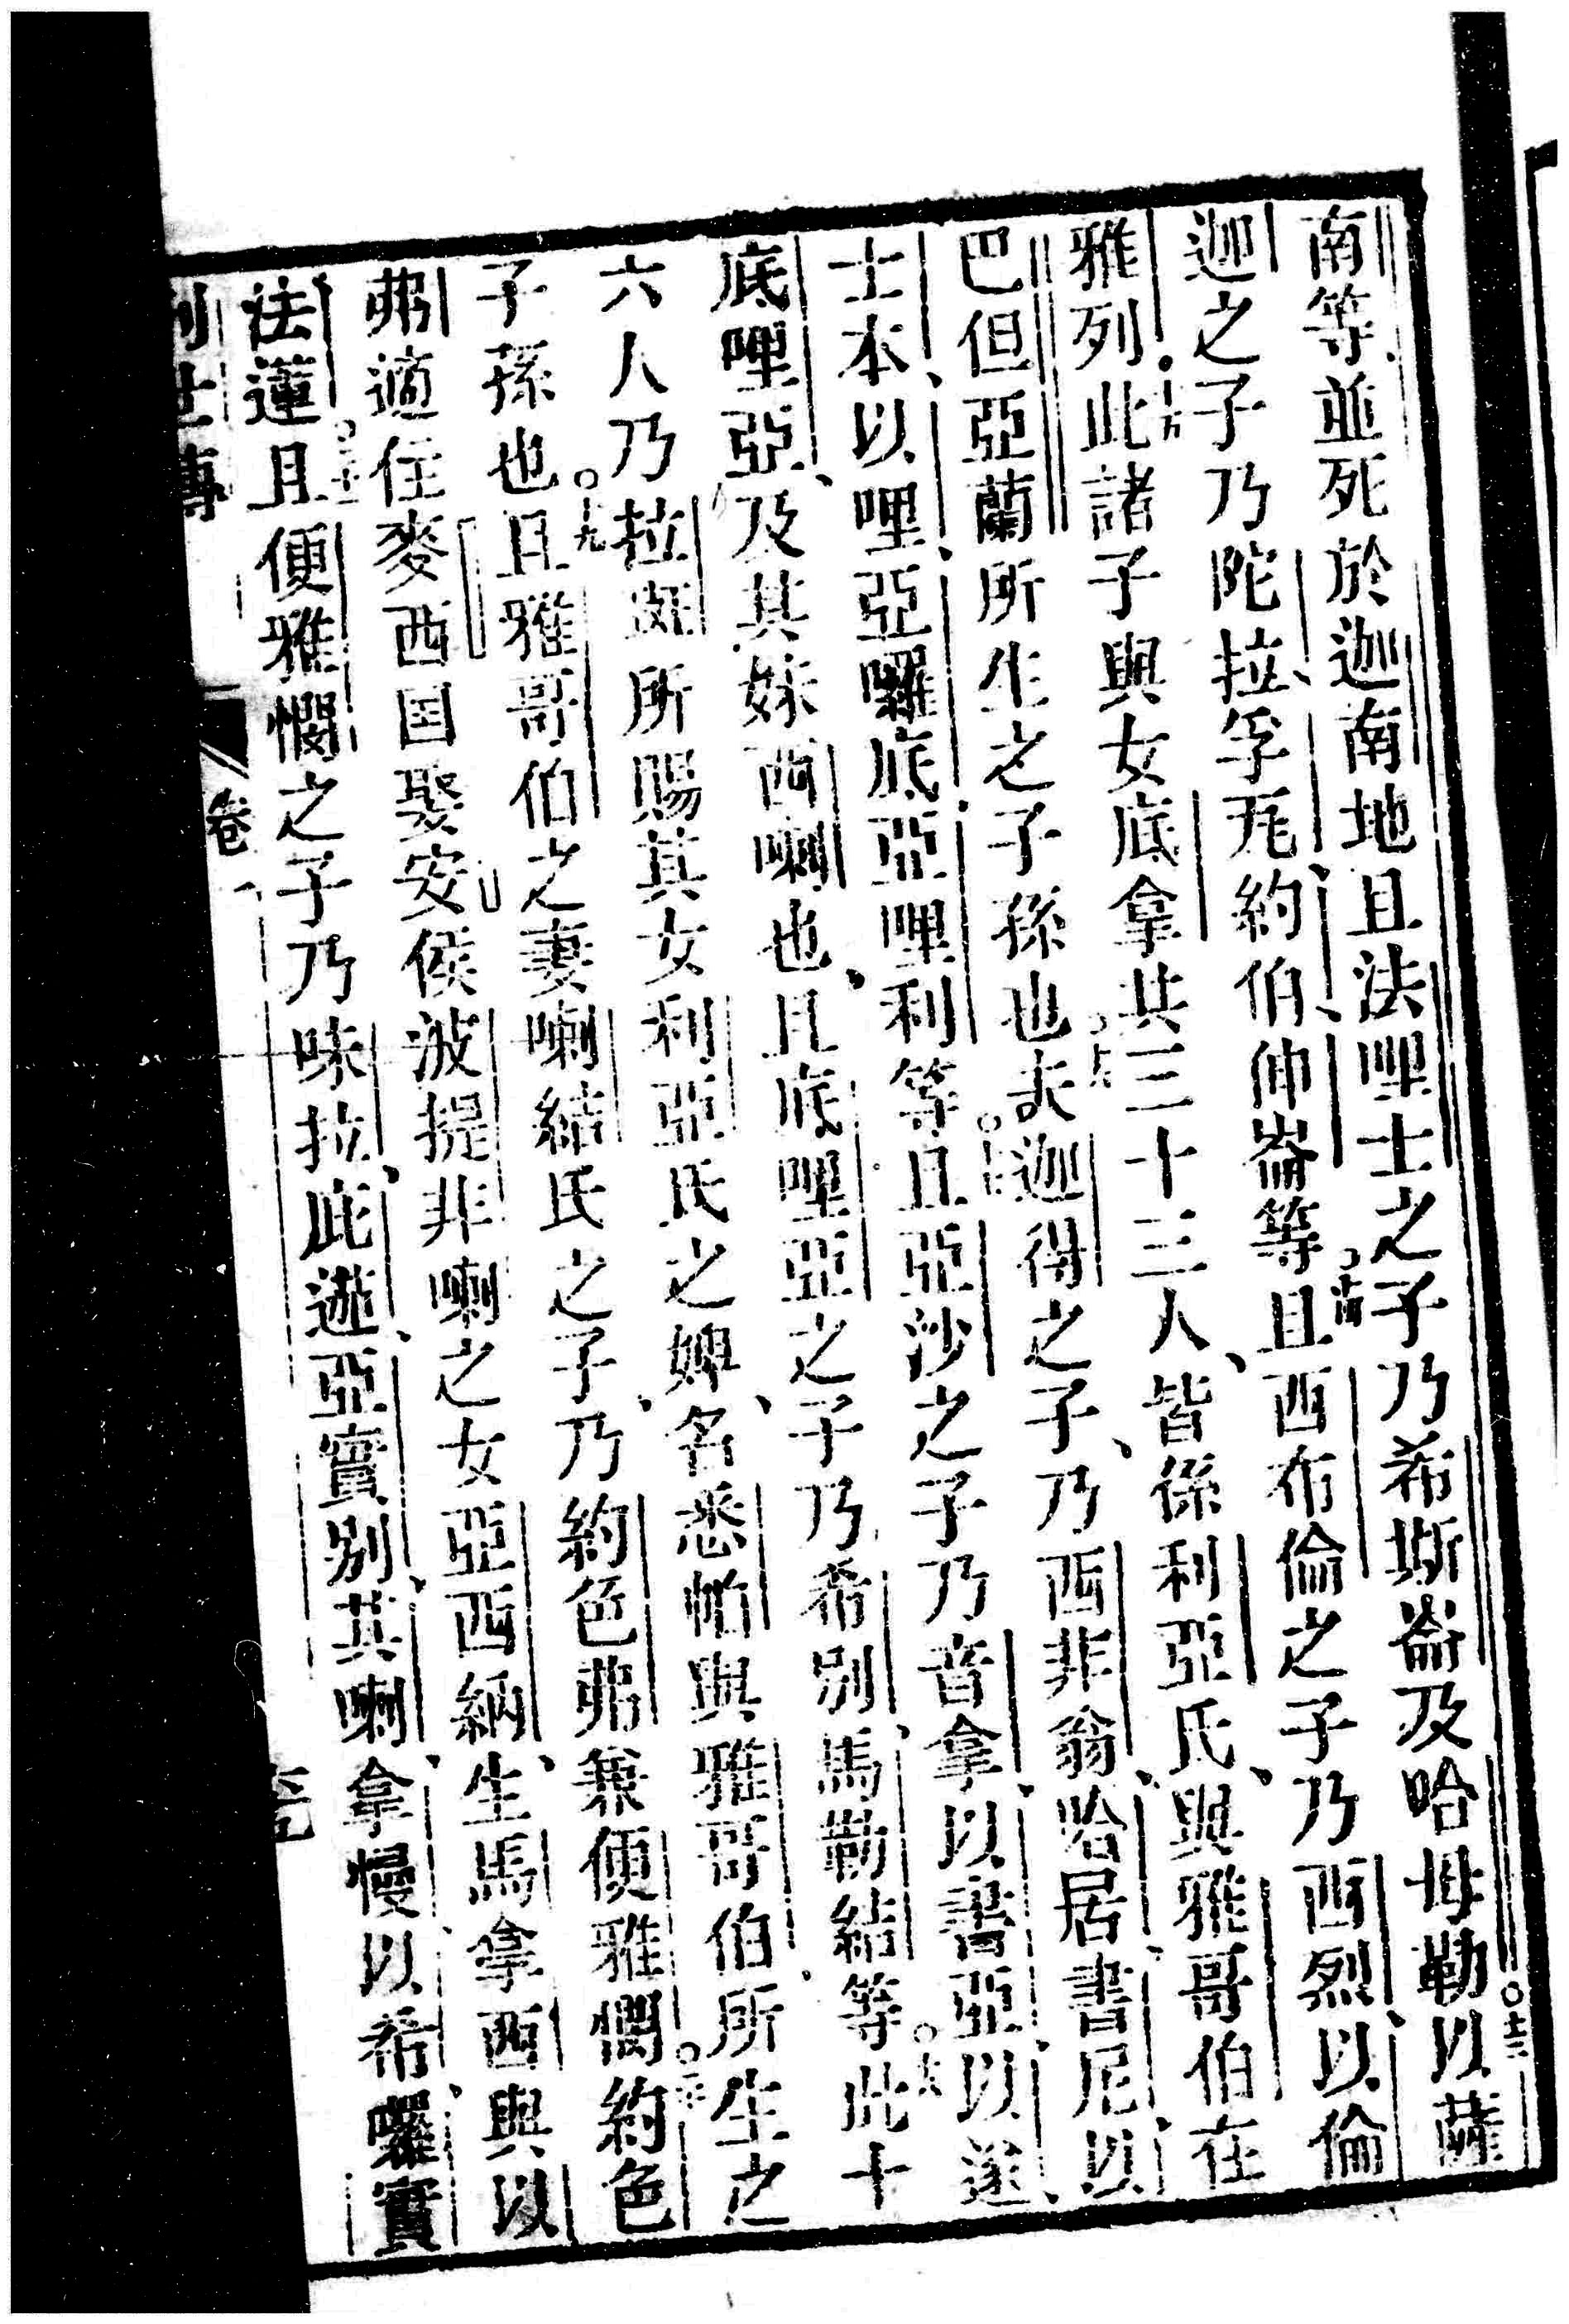 南等、並死於迦南地且法哩士之子乃希斯崙及哈母勒〇十三以薩
迦之子乃陀拉、孚兎、約伯、伸崙等〇十四且西布倫之子乃西烈、以倫
雅列。十五此諸子與女底拿共三十三人、皆係利亞氏、與雅哥伯在
巴但亞蘭所生之子孫也〇十六夫迦得之子、乃西非翁、哈居、書尼、以
士本、以哩、亞囉底、亞哩利等〇十七且亞沙之子乃音拿、以書亞、以遂、
底哩亞、及其妹西喇也、且底哩亞之子乃希別、馬勒結等〇十八此十
六人乃拉班所賜其女利亞氏之婢、名悉帕與雅哥伯、所生之
子孫也〇十九且雅哥伯之妻喇結氏之子、乃約色弗兼便雅憫〇二十約色
弗適住麥西国娶安侯波提非喇之女亞西納、生馬拿西與以
法蓮〇二十一且便雅憫之子乃味拉、庇遜、亞實別、其喇、拿慢、以希、囉實
創世傳 卷一